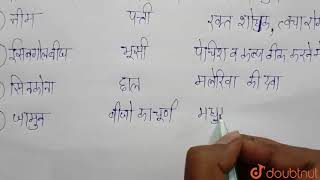 नीम पत्ती रक्त शोधक, त्वचा रोग
ईसबगोल बीज भूसी पेचिश व कब्ज ठीक करने में
सिनकोना छाल मलेरिया की दवा
जामुन बीजों का चूर्ण मधु
doubtnut